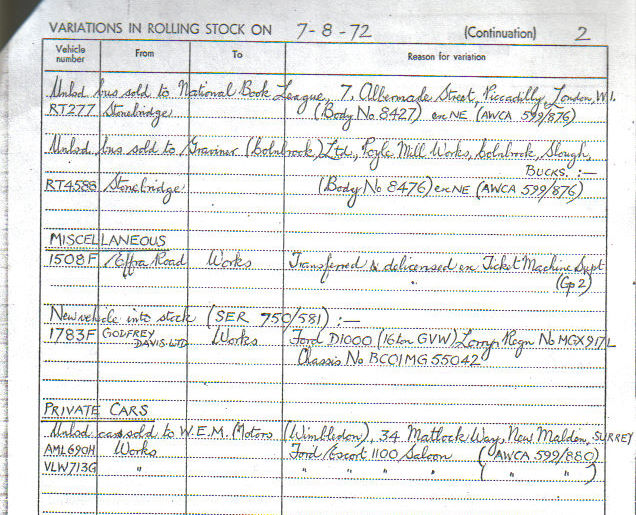 VARIATIONS IN ROLLING STOCK ON 7-8-72 (Continuation) 2
Vehicle number From To Reason for variation
Unlsd bus sold to National Book League, 7, Albermade Street, Piccadilly, London, W1.
RT277 Stonebridge (Body No 8427) ex NE (AWCA 599/876)
Unlsd bus sold to Graviner (Colnbrook) Ltd., Poyle Mill Works, Colnbrook, Slough,
BUCKS. :—
RT4588 Stonebridge (Body No 8476) ex NE (AWCA 599/876)
MISCELLANEOUS
1508F Effra Road Works Transferred & delicensed ex Ticket Machine Supt
" (Gp 2)
New vehicle into stock (SER 750/581) :—
1783F GODFREY DAVIS. LTD Works Ford D1000 (16 ton GVW) Lorry Regn No MGX917L
Chassis No BC01MG 55042
PRIVATE CARS
Unlsd cars sold to W.E.M. Motors (Wimbledon), 34 Matlock Way, New Malden, SURREY
AML690H Works Ford Escort 1100 Saloon (AWCA 599/880)
VLW713G " " " " " ( " " )